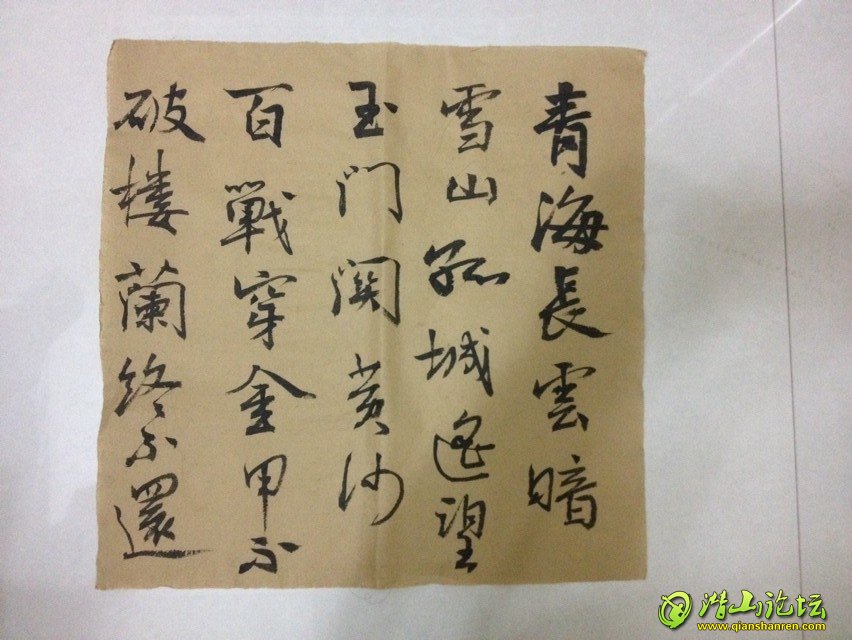 青海長雲暗
雪山孤城遙望
玉门関黄沙
百戰穿金甲不
破楼蘭终不還
潜山论坛
www.qianshanren.com